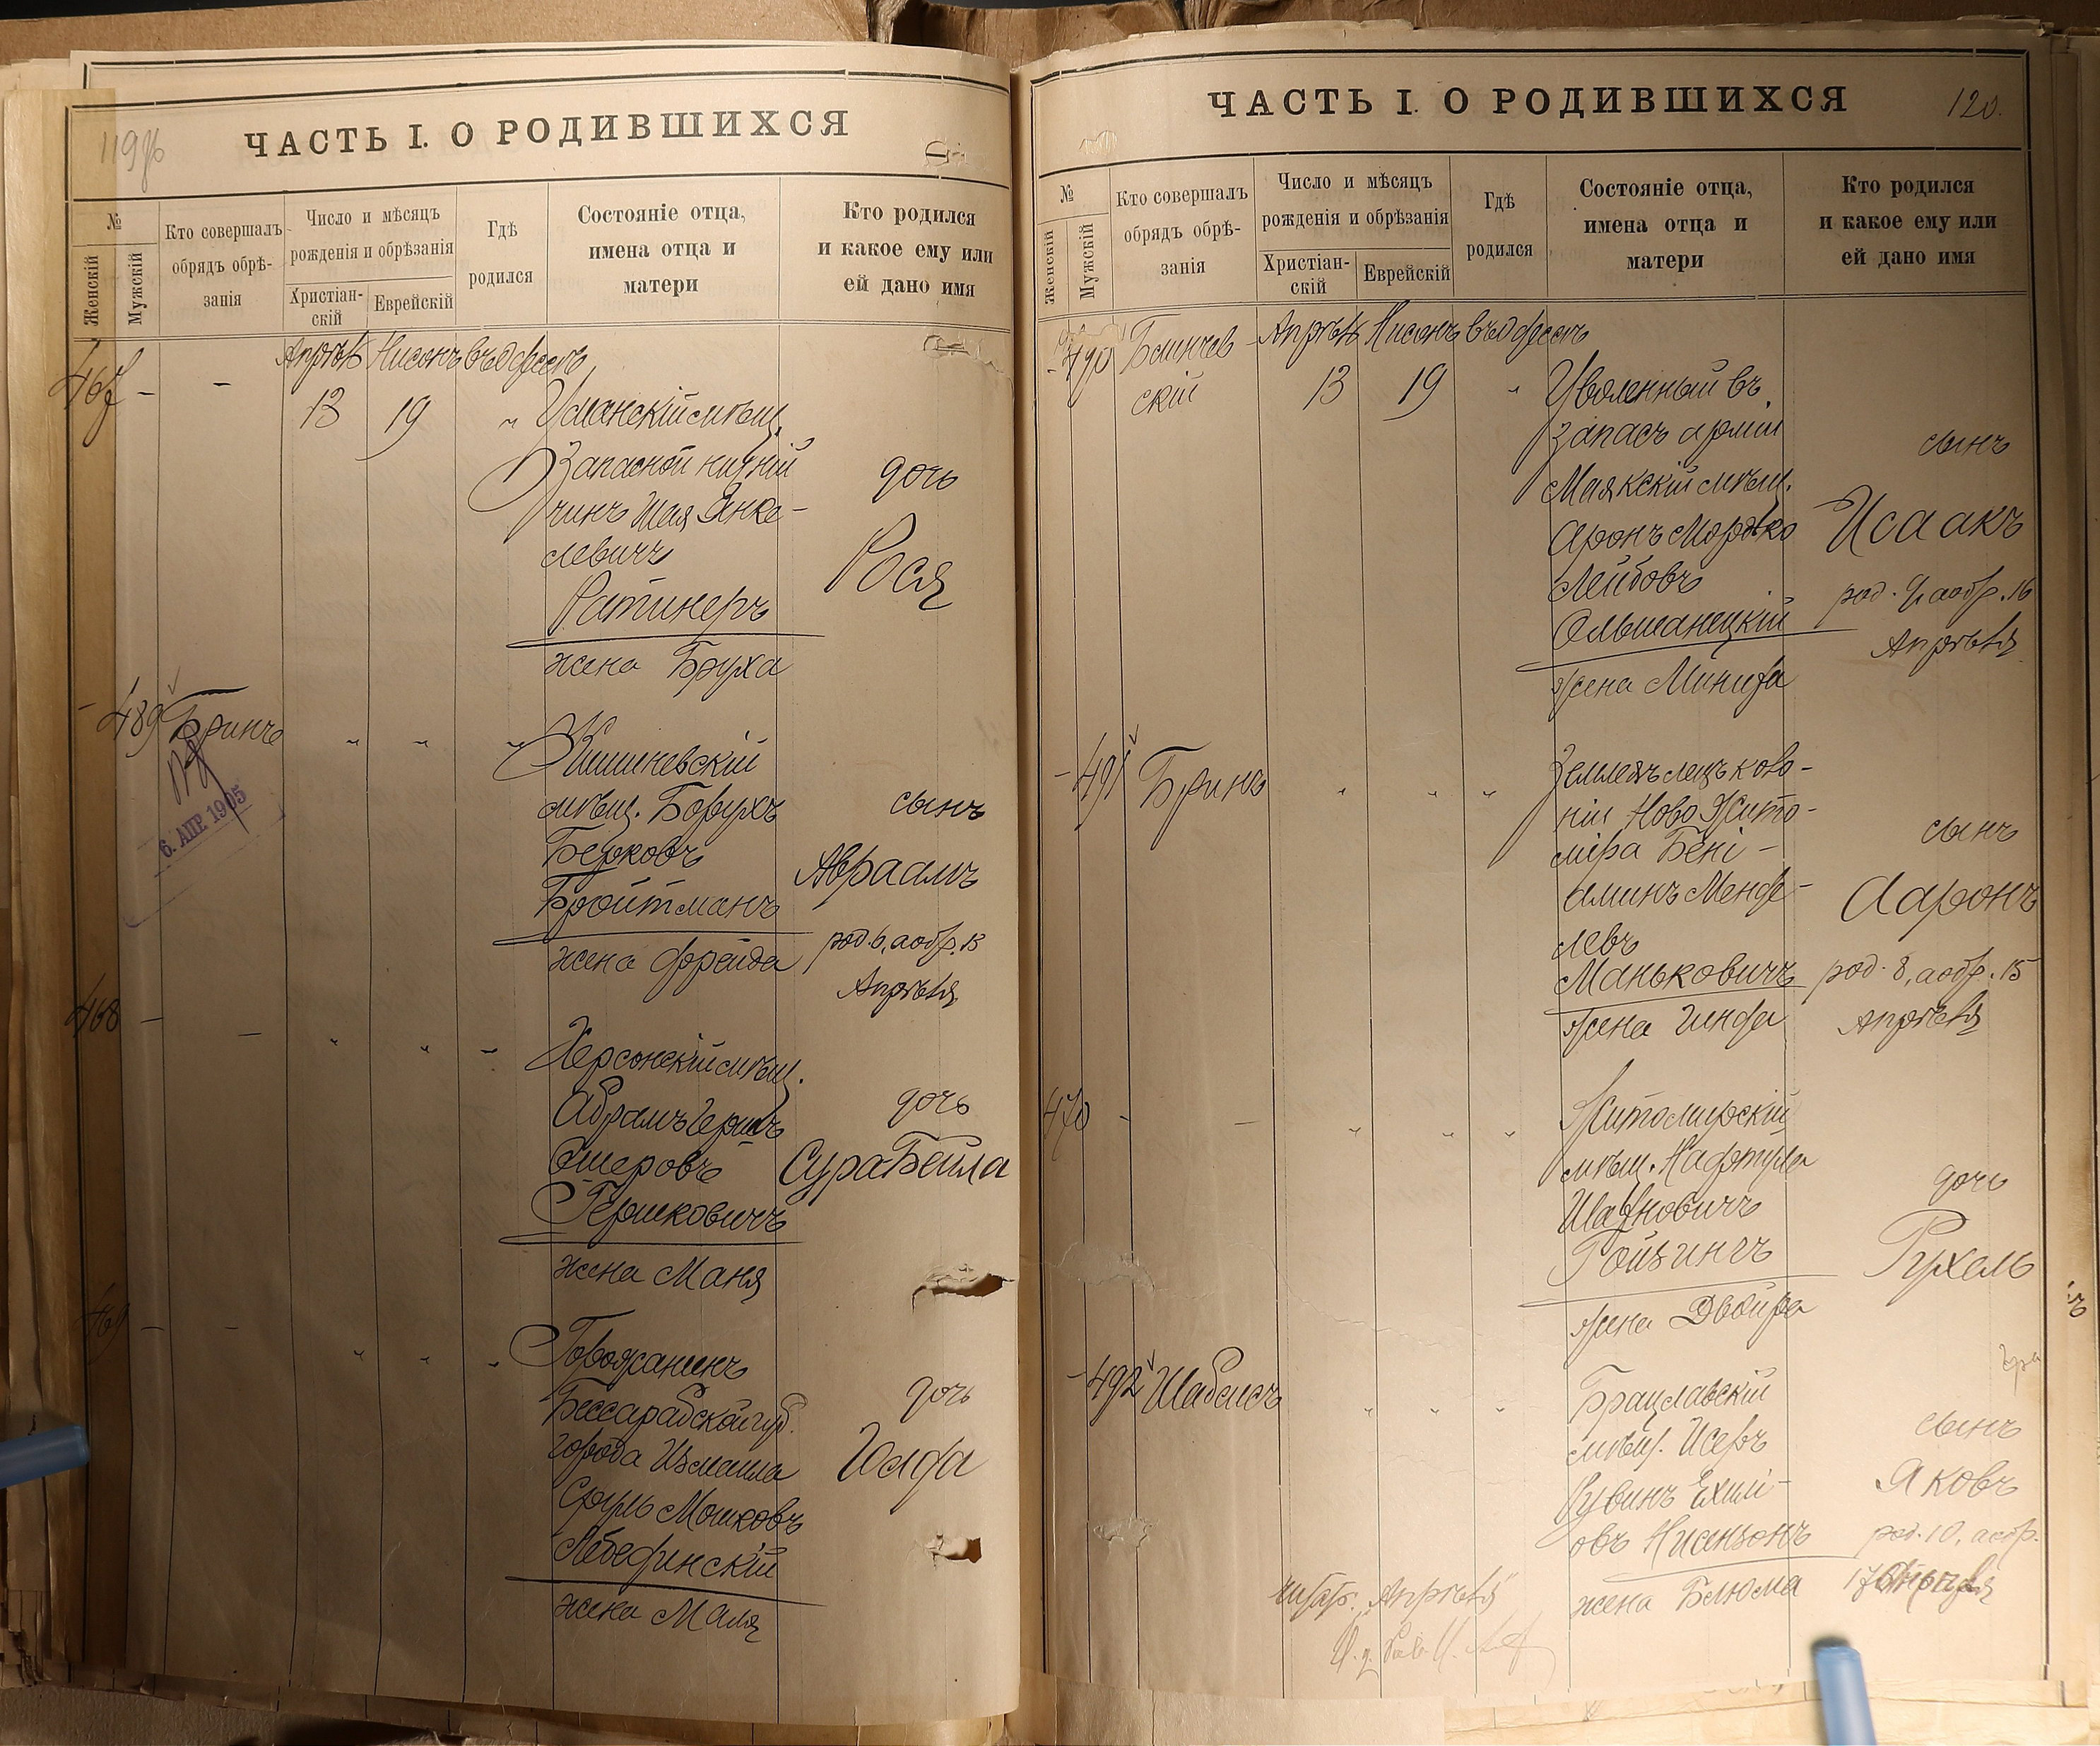 119об
ЧАСТЬ I. О РОДИВШИХСЯ
№
Женскій
Мужскій
Кто совершалъ
обрядъ обрѣ-
занія
Число и мѣсяцъ
рожденія и обрѣзанія
Христіан-
скій
Еврейскій
Гдѣ
родился
Состояніе отца,
имена отца и
матери
Кто родился
и какое ему или
ей дано имя
Апрѣль Нисонъ въ Одессѣ
467 - - 13 19 " Уманскій мѣщ.
Запасной нижній
чинъ Шая Янке-
левичъ
Ратинеръ
жена Бруха
дочь
Рося
489 Бринъ " " " Кишиневскій
мѣщ. Борухъ
Берковъ
Бройтманъ
жена Фрейда
сынъ
Авраамъ
род. 6, а обр. 13
Апрѣля
6. АПР. 1905
468 - - " " " Херсонскій мѣщ.
Абрамъ Гершъ
Ошеровъ
Гершковичъ
жена Маня
дочь
Сура Бейла
469 - - " " " Горожанинъ
Бессарабской губ.
города Измаила
Сруль Мошковъ
Лебединскій
жена Маля
дочь
Голда
120.
ЧАСТЬ I. О РОДИВШИХСЯ
№
Женскій
Мужскій
Кто совершалъ
обрядъ обрѣ-
занія
Число и мѣсяцъ
рожденія и обрѣзанія
Христіан-
скій
Еврейскій
Гдѣ
родился
Состояніе отца,
имена отца и
матери
Кто родился
и какое ему или
ей дано имя
Апрѣль Нисонъ въ Одессѣ
- 490
скій
13 19 " Уволенный въ
запасъ арміи
Маякскій мѣщ.
Аронъ Мордко
Лейбовъ
Ольшанецкій
жена
сынъ
Исаакъ
род. 9, а обр. 16
Апрѣля
- 491 Бринъ " " " Земледѣлецъ коло-
ніи Ново Жито-
міра Бені-
аминъ Менде-
левъ
Маньковичъ
жена Гинда
сынъ
Ааронъ
род. 8, а обр. 15
Апрѣля
470 - - " " " Житомирскій
мѣщ. Нафтула
Ройзингъ
жена Двойра
дочь
Рухель
- 492 Шабсисъ " " " Брацлавскій
мѣщ. Исеръ
Рувинъ Ехилі-
овъ Нисензонъ
жена Блюма
сынъ
Яковъ
род. 10, а обр.
17 Апрѣля
Апрѣля